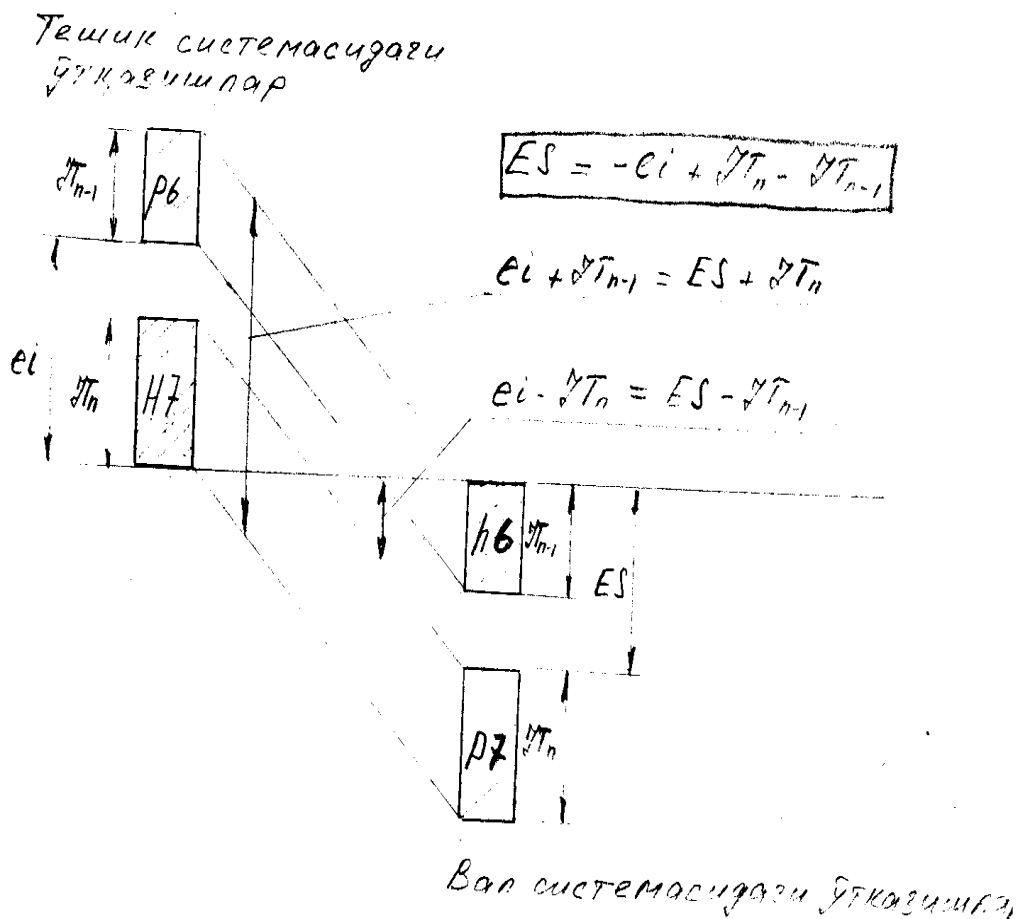 Тешик системасидаги
ўтказишлар
JTn-1
p6
ES = -ei + JTn - JTn-1
ei + JTn-1 = ES + JTn
ei
JTn
H7
ei - JTn = ES - JTn-1
h6
JTn-1
ES
p7
JTn
Вал системасидаги ўтказишлар